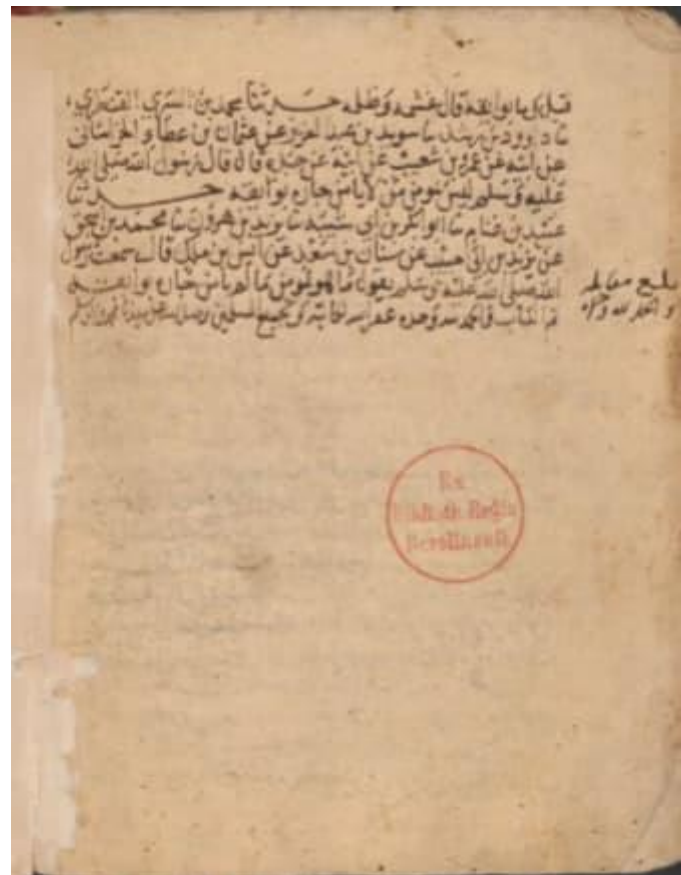 قيل ما بوائقه قال غشمه وظلمه حدثنا محمد بن السري القنطري
نا داوود بن رشيد نا سويد بن عبد العزيز عن عثمان بن عطاء الخراساني
عن ابيه عن عمرو بن شعيب عن ابيه عن جده قال قال رسول الله صلى الله
عليه وسلم ليس بمومن من لا يامن جاره بوائقه حدثنا
عبيد بن غنام نا ابو بكر بن ابي شيبة نا يزيد بن هرون نا محمد بن اسحق
عن يزيد بن ابي حبيب عن سنان بن سعد عن انس بن ملك قال سمعت رسول
الله صلى الله عليه وسلم يقول ما هو بمومن من لم يامن جاره بوائقه
تم الكتاب والحمد لله وحده غفر الله لكاتبه ولجميع المسلمين
بلغ مقابلة
والحمد لله وحده
Ex
Biblioth. Regia
Berolinensi.